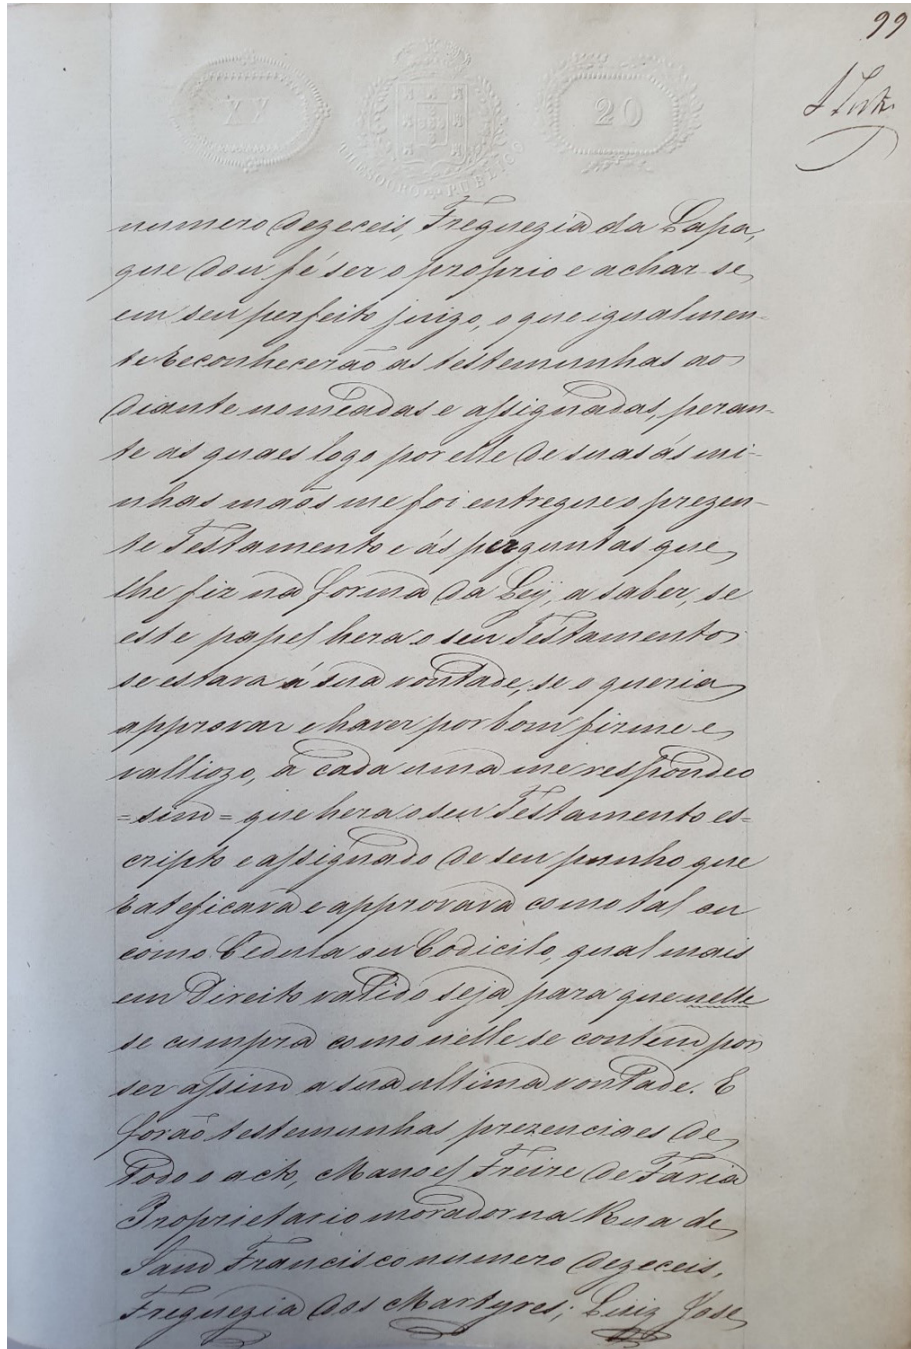 99
XX
THESOURO PUBLICO
20
numero dezeceis, Freguezia da Lapa,
que dou fé ser o proprio e achar-se
em seu perfeito juizo, o que igualmen-
te reconhecerão as testemunhas ao
diante nomeadas e assignadas, peran-
te as quaes logo por elle de suas ás mi-
nhas mãos me foi entregue o prezen-
te Testamento e ás perguntas que
lhe fiz na forma da Ley, a saber, se
este papel hera o seu Testamento
se estava á sua vontade, se o queria
approvar e haver por bom firme e
valliozo, a cada uma me respondeo
=sim= que hera o seu Testamento es-
cripto e assignado de seu punho que
rateficava e approvava como tal ou
como Cedula ou Codicilo, qual mais
em Direito valido seja, para que nelle
se cumpra como nelle se contem por
ser assim a sua ultima vontade. E
forão testemunhas prezenciaes de
todo o acto, Manoel Freire de Faria
Proprietario morador na Rua de
Sam Francisco numero dezeceis,
Freguezia dos Martyres; Luiz Jose